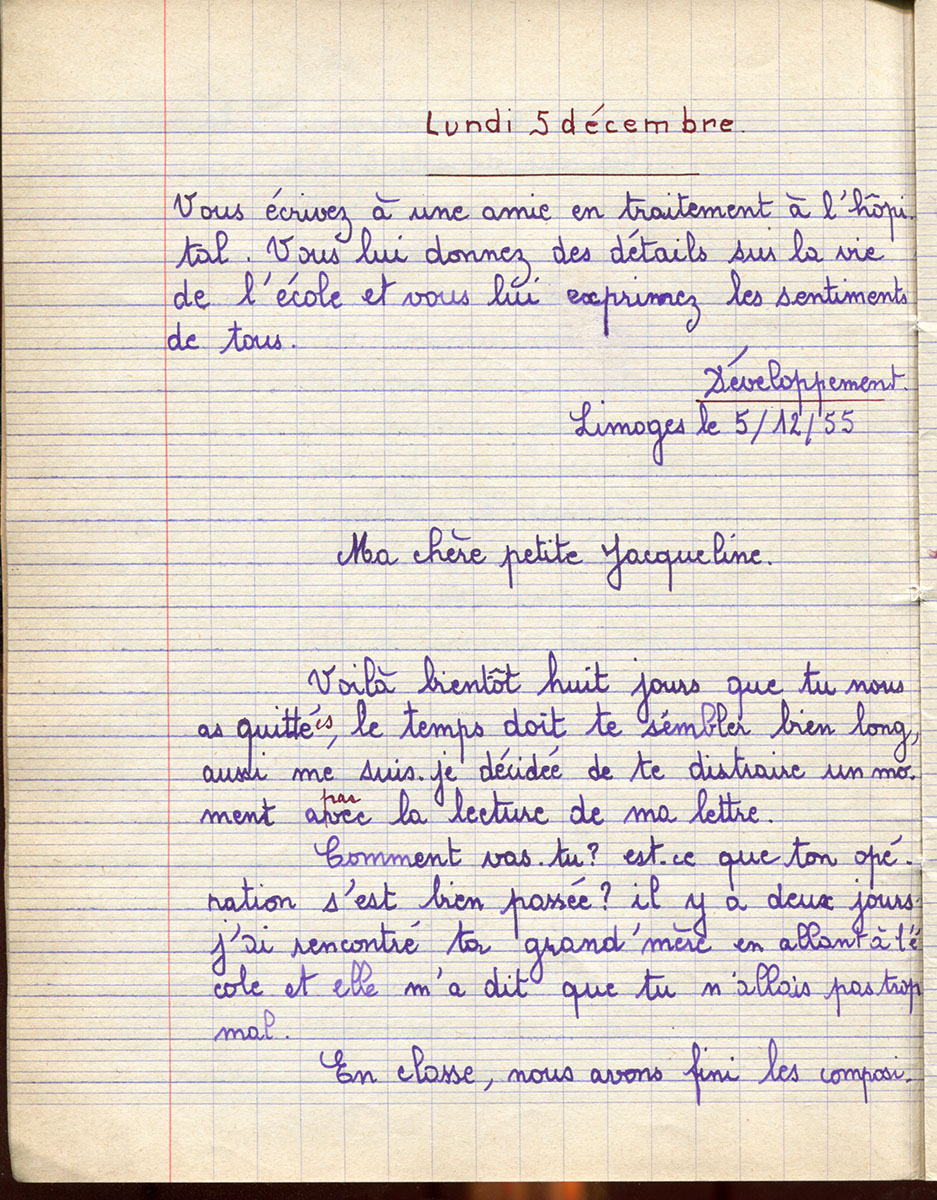 Lundi 5 décembre.
Vous écrivez à une amie en traitement à l'hôpi-
tal. Vous lui donnez des détails sur la vie
de l'école et vous lui exprimez les sentiments
de tous.
Développement.
Limoges le 5/12/55
Ma chère petite Jacqueline.
Voilà bientôt huit jours que tu nous
as quittés, le temps doit te sembler bien long,
aussi me suis-je décidée de te distraire un mo-
par
ment avec la lecture de ma lettre.
Comment vas-tu? est-ce que ton opé-
ration s'est bien passée? il y a deux jours
j'ai rencontré ta grand'mère en allant à l'é
cole et elle m'a dit que tu n'allais pas trop
mal.
En classe, nous avons fini les composi-